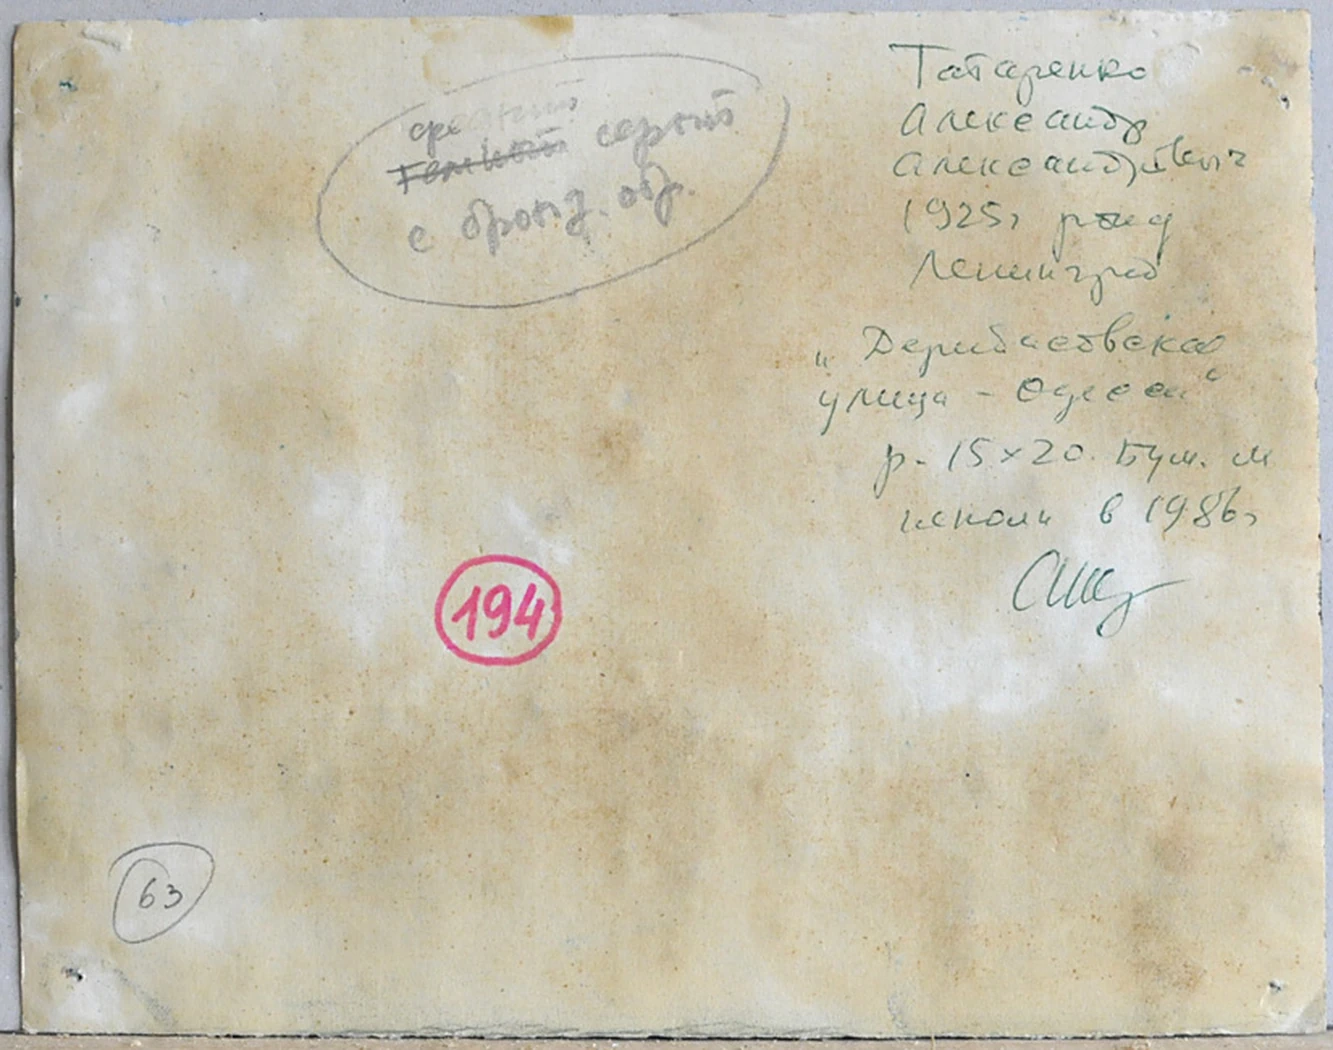 средний
темный серый
с бронз. обр.
Татаренко
Александр
Александрович
1925г рожд
Ленинград
„Дерибасовская
улица - Одесса“
р. 15х20. Бум. м
исполн в 1986г
194
63